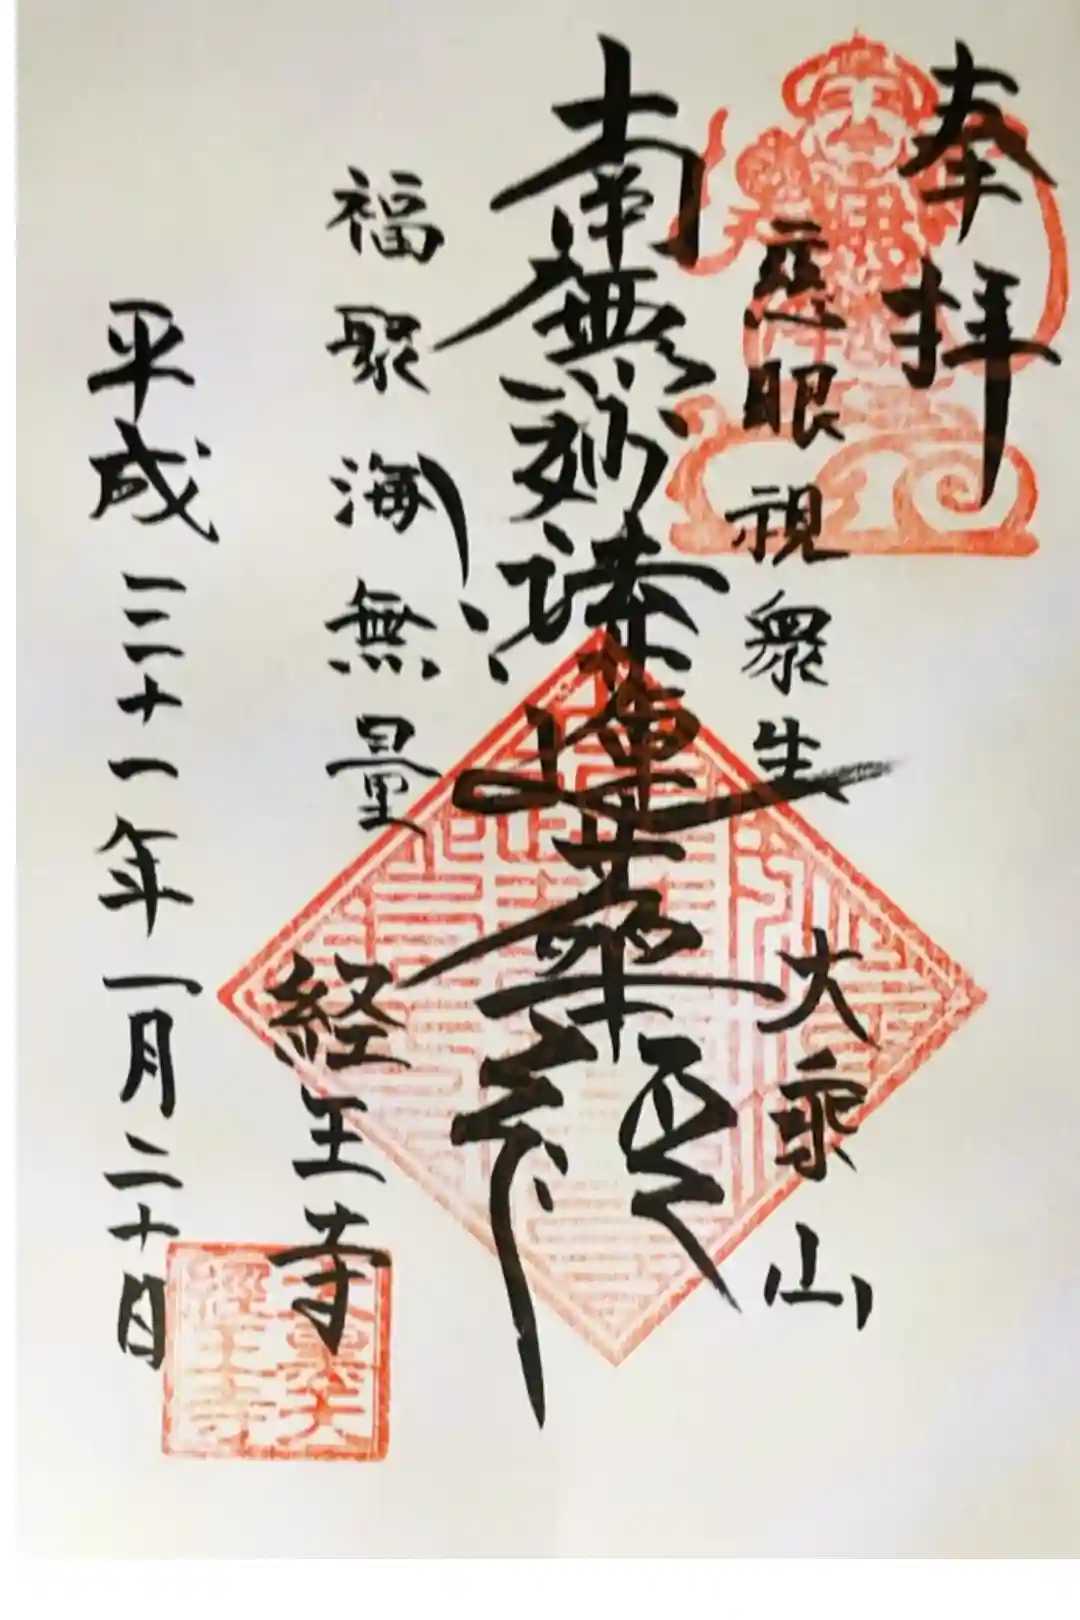 奉拝
慈眼視衆生
大乘山
南無妙法蓮華経
福聚海無量
経王寺
平成三十一年一月二十日
經王寺